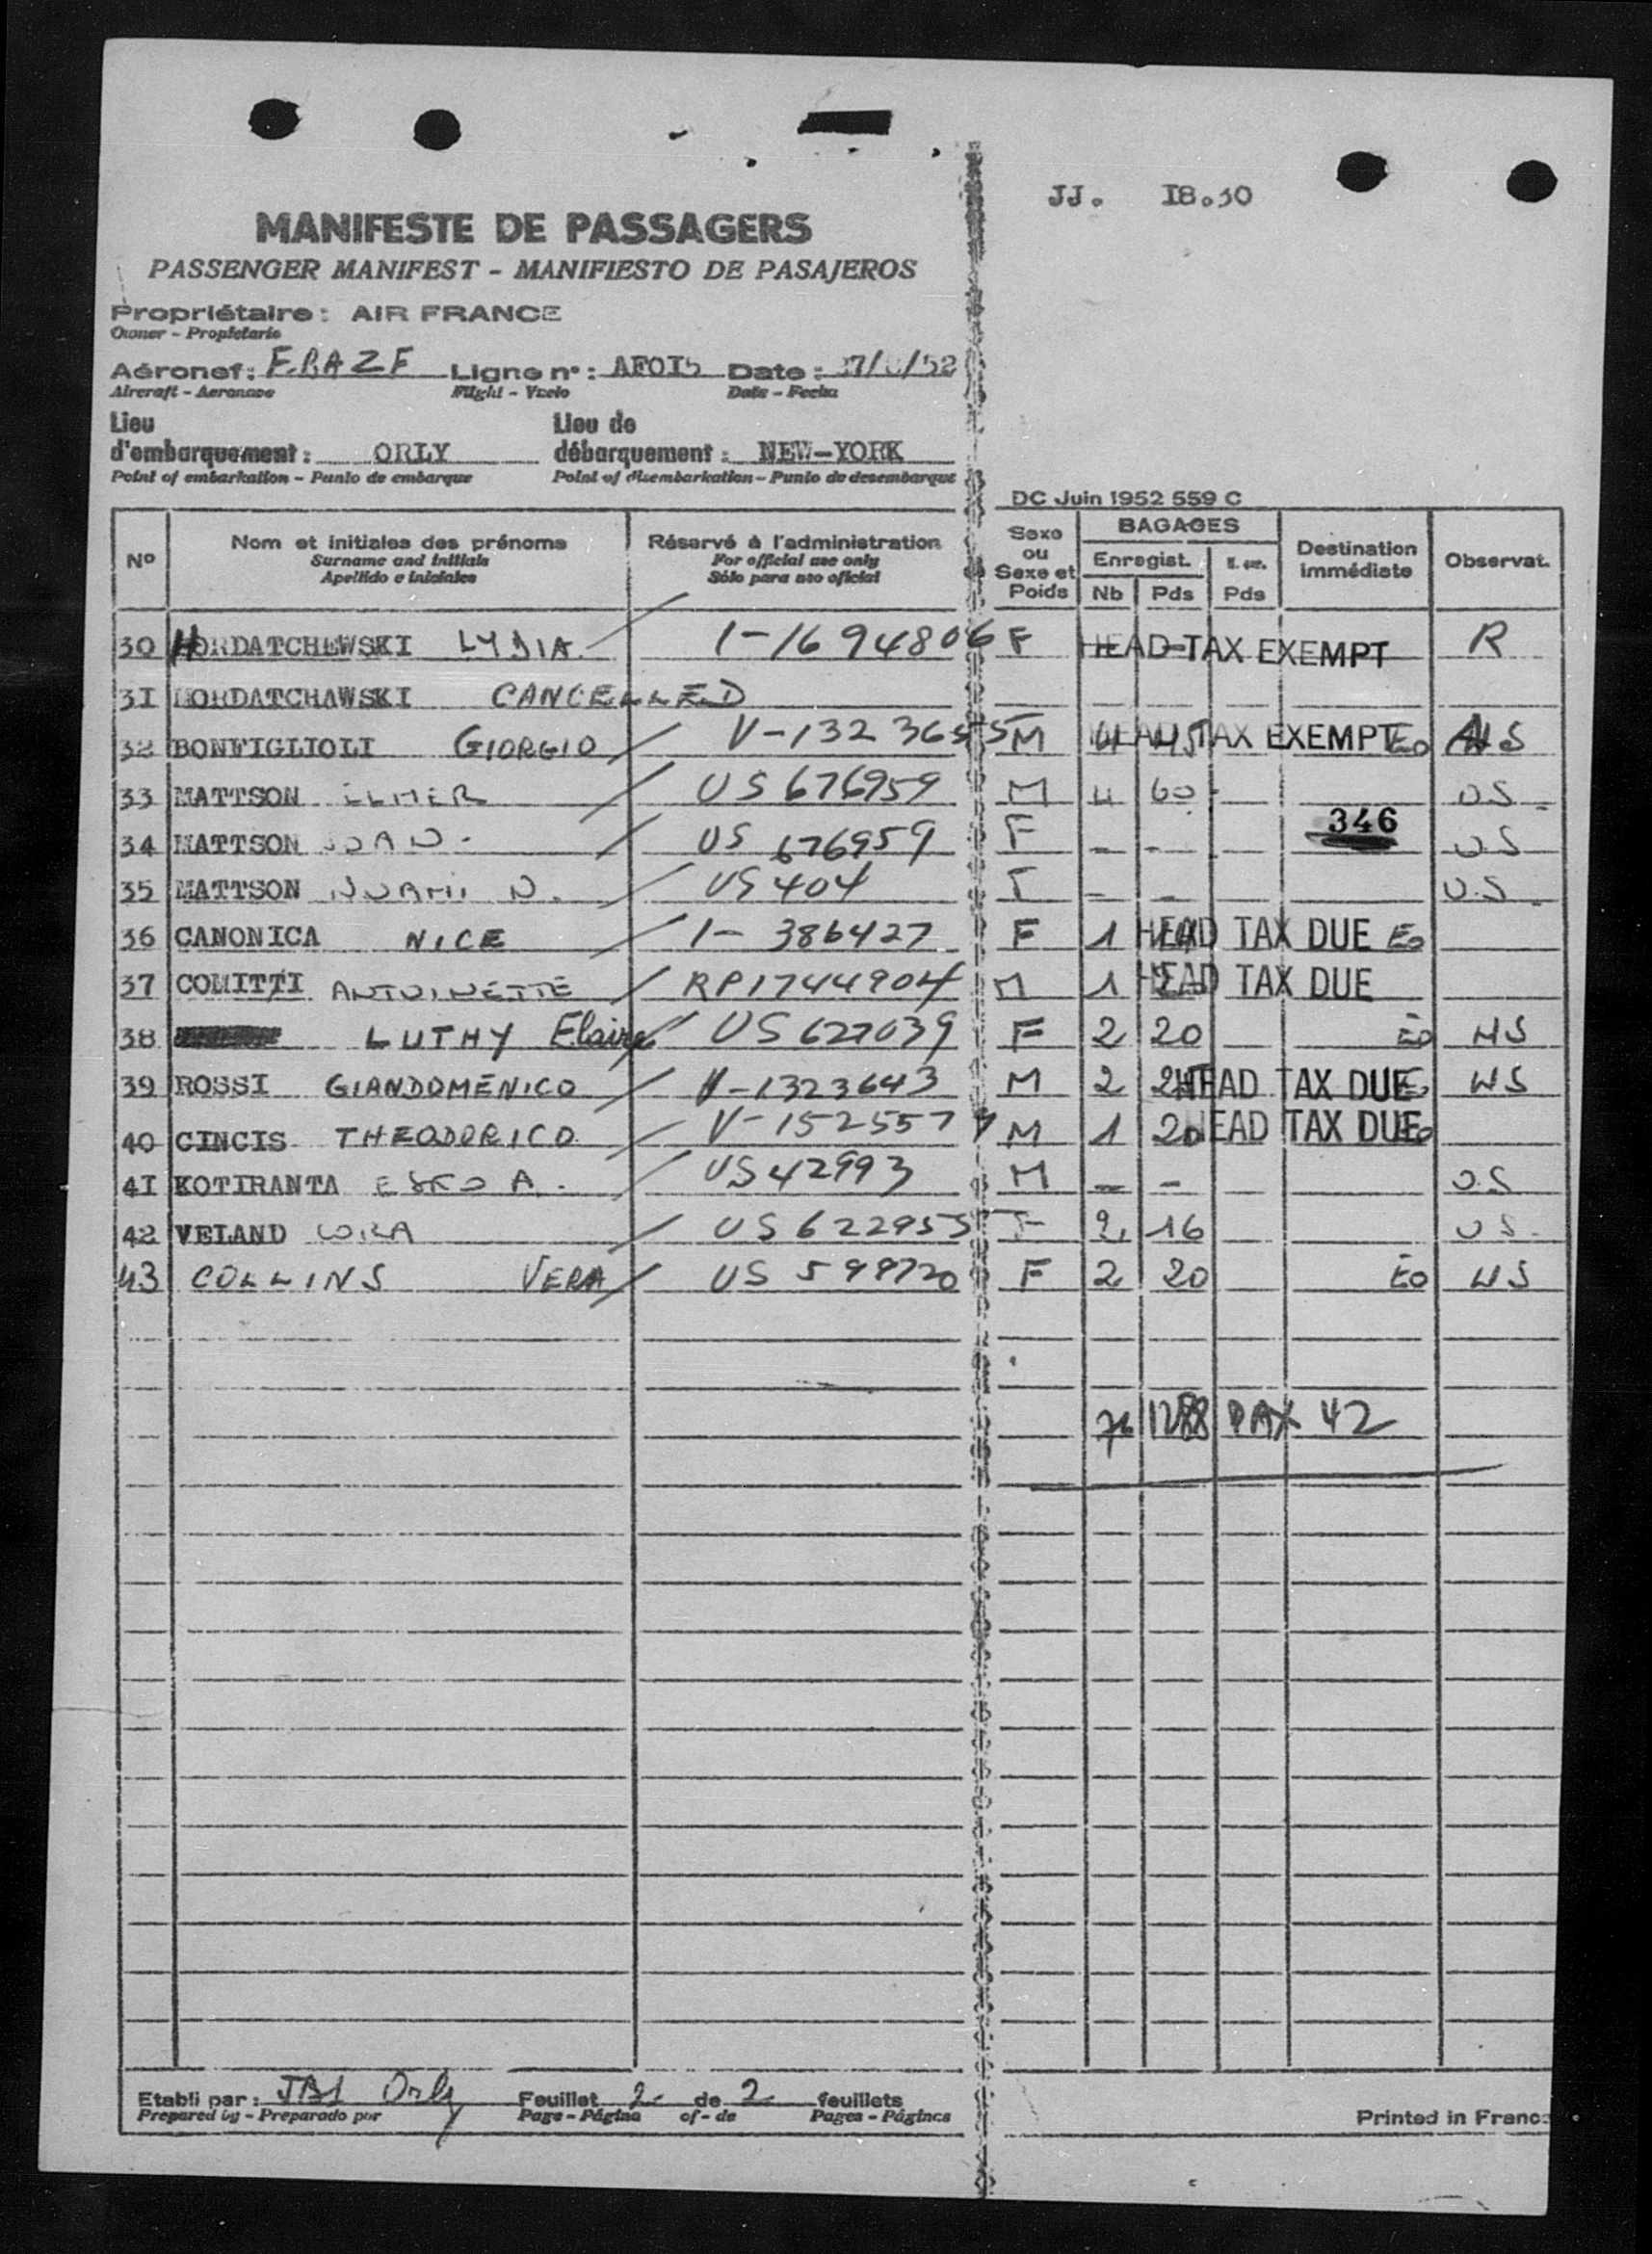 JJ. I8.30
MANIFESTE DE PASSAGERS
PASSENGER MANIFEST - MANIFIESTO DE PASAJEROS
Propriétaire: AIR FRANCE
Owner - Propietario
Aéronef: F.BAZF Ligne n°: AF0I5 Date: /52
Aircraft - Aeronave Flight - Vuelo Date - Fecha
Lieu d'embarquement: ORLY Lieu de débarquement: NEW-YORK
Point of embarkation - Punto de embarque Point of disembarkation - Punto de desembarque
DC Juin 1952 559 C
N° Nom et initiales des prénoms Réservé à l'administration Sexe ou Sexe et Poids BAGAGES Destination immédiate Observat.
Surname and initials For official use only Enregist.
Apellido e iniciales Sólo para uso oficial Nb Pds Pds
30 HORDATCHEWSKI LYDIA. 1-16 94806 F HEAD TAX EXEMPT R
3I HORDATCHAWSKI CANCELLED
32 BONFIGLIOLI GIORGIO V-132 3655 M 4 45 HEAD TAX EXEMPT Eo NS
33 MATTSON ELMER US 676959 M 4 60 - US
346
34 MATTSON JOAN - US 676959 F - - - US
35 MATTSON N. US 404 F - - U.S
36 CANONICA NICE 1- 386427 F 1 HEAD TAX DUE Eo
37 COMITTI ANTOINETTE RP1744904 M 1 HEAD TAX DUE
38 LUTHY Elaine US 627039 F 2 20 Eo NS
39 ROSSI GIANDOMENICO V-1323643 M 2 HEAD TAX DUE Eo NS
40 CINCIS THEODORICO V-1525577 M 1 20 HEAD TAX DUE Eo
4I KOTIRANTA ESKO A. US 42993 M - - US
42 VELAND CORA US 622955 F 2 16 US.
43 COLLINS VERA US 599720 F 2 20 Eo NS
76 1288 PAX 42
Etabli par: Orly Feuillet 2 de 2 feuillets
Prepared by - Preparado por Page - Página of - de Pages - Páginas
Printed in Franc